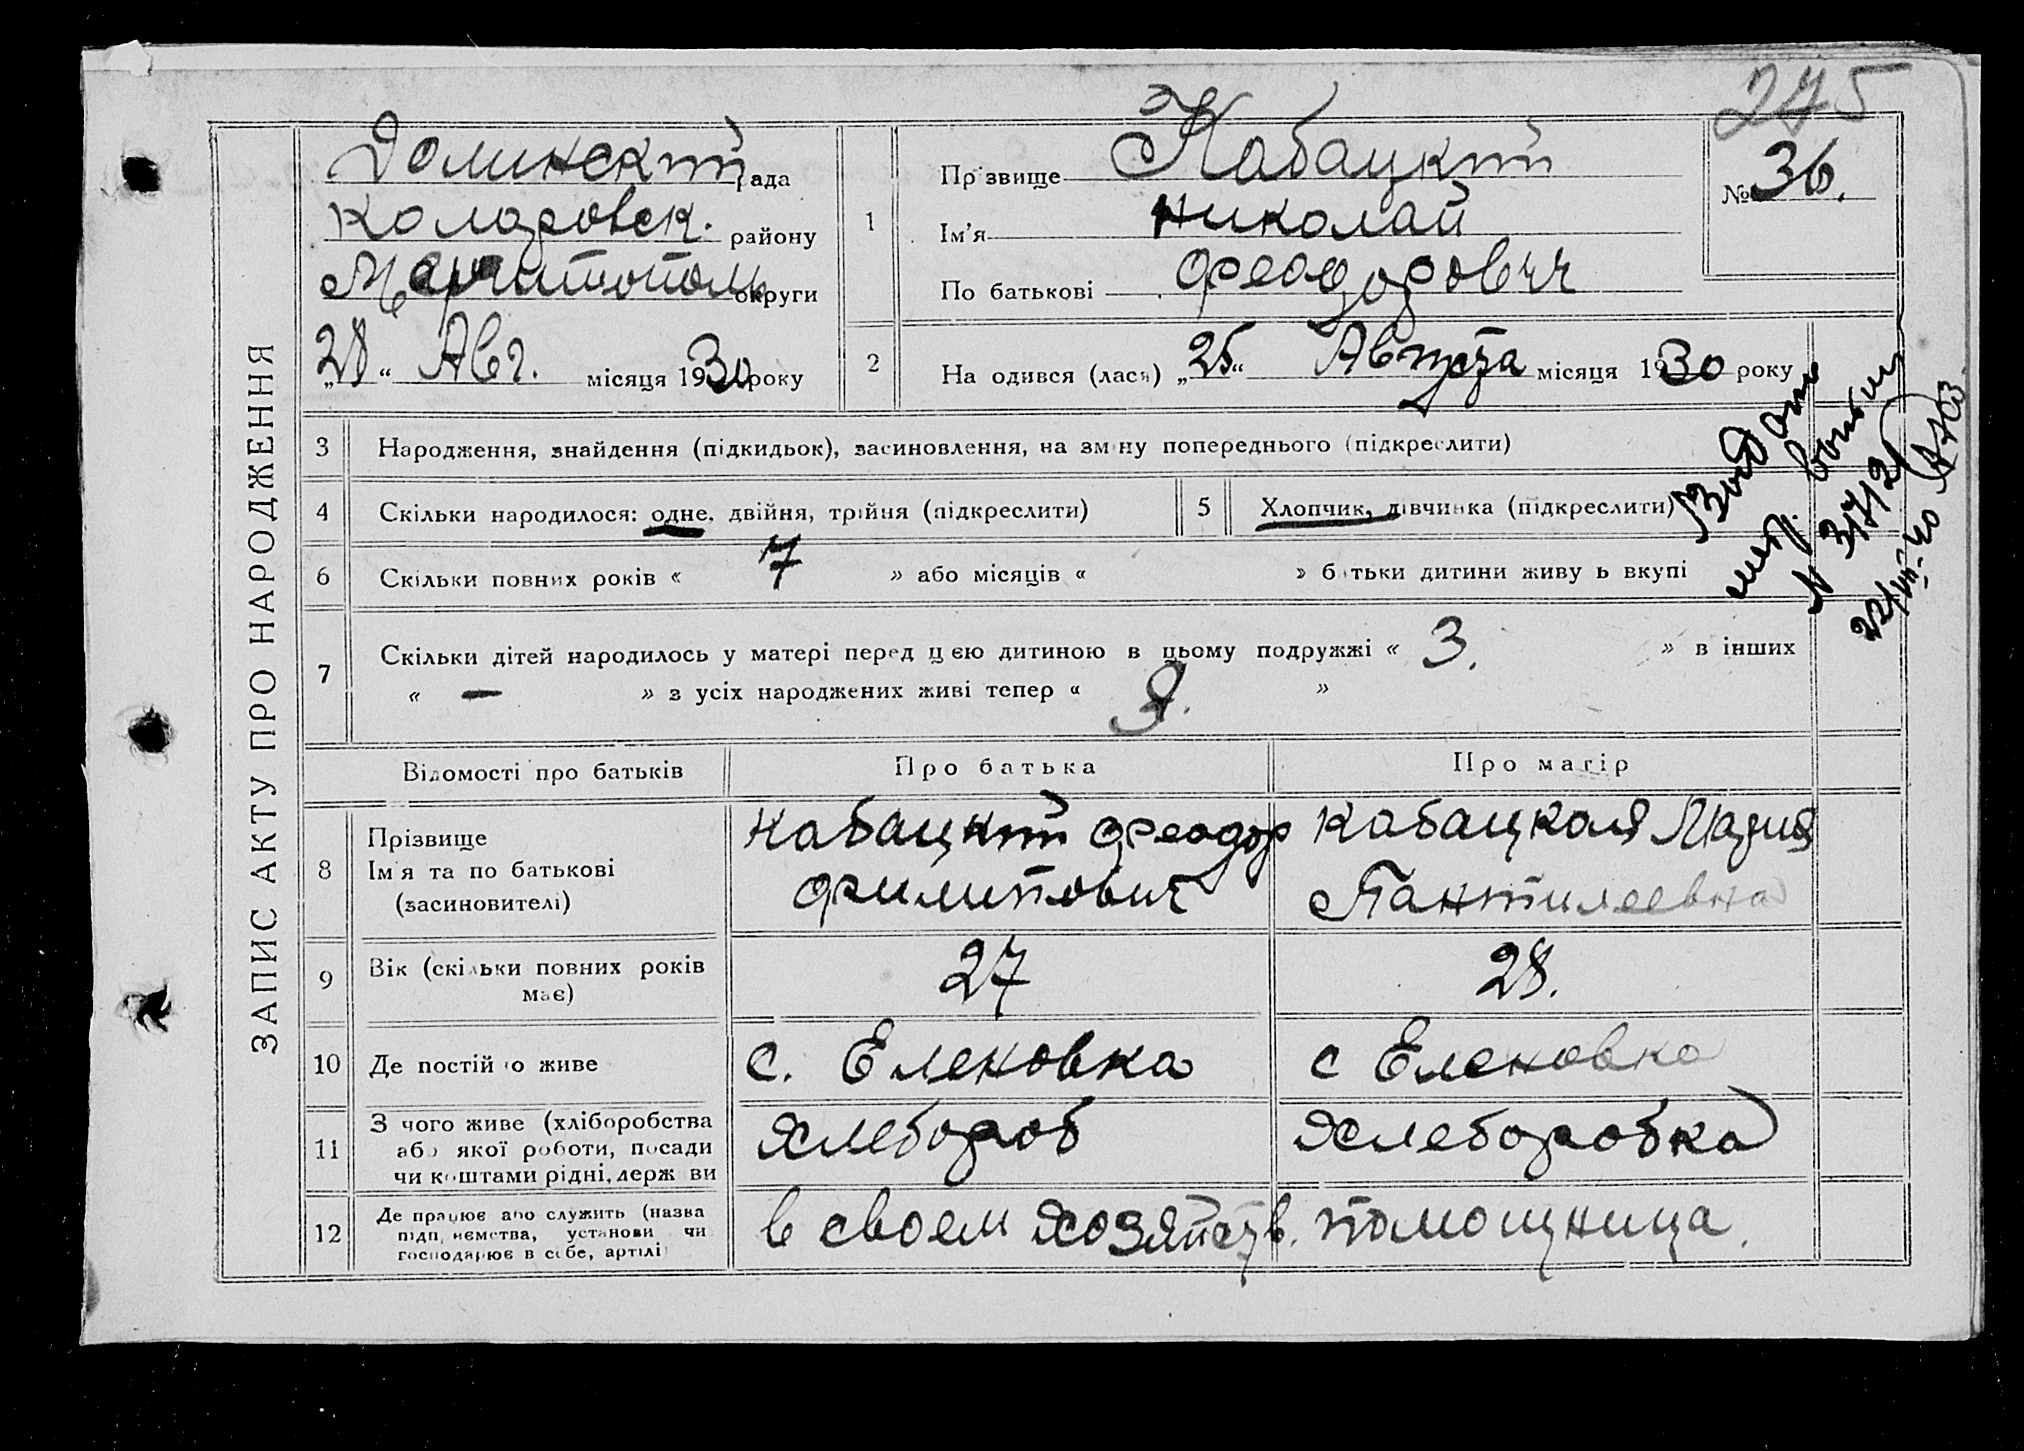 275
ЗАПИС АКТУ ПРО НАРОДЖЕННЯ
Долинский рада
Коларовск. району
округи
„28“ Авг. місяця 1930 року
1
Прізвище Кабацкий
Ім’я Николай
По батькові Феодорович
№ 36.
2
На одився (лася) „25“ Августа місяця 1930 року
3 Народження, знайдення (підкидьок), засиновлення, на зм ну попереднього (підкреслити)
4 Скільки народилося: одне, двійня, трійня (підкреслити)
5 Хлопчик, дівчинка (підкреслити)
6 Скільки повних років « 7 » або місяців « » б тьки дитини живу ь вкупі
7 Скільки дітей народилось у матері перед цією дитиною в цьому подружжі « 3. » в інших
« — » з усіх народжених живі тепер « »
мет.
№
22/VIII-40
Відомості про батьків
Про батька
Про матір
8 Прізвище
Ім я та по батькові
(засиновителі)
Кабацкий Феодор
Филипович
Кабацкая Мария
Пантилеевна
9 Вік (скільки повних років
має)
27
28.
10 Де постій о живе
с. Еленовка
с Еленовка
11 З чого живе (хліборобства
або якої роботи, посади
чи коштами рідні, держ ви
Хлебороб
Хлеборобка
12 Де працює або служить (назва
підп иємства, установи чи
господарює в себе, артілі
в своем хозяйств.
помощница.